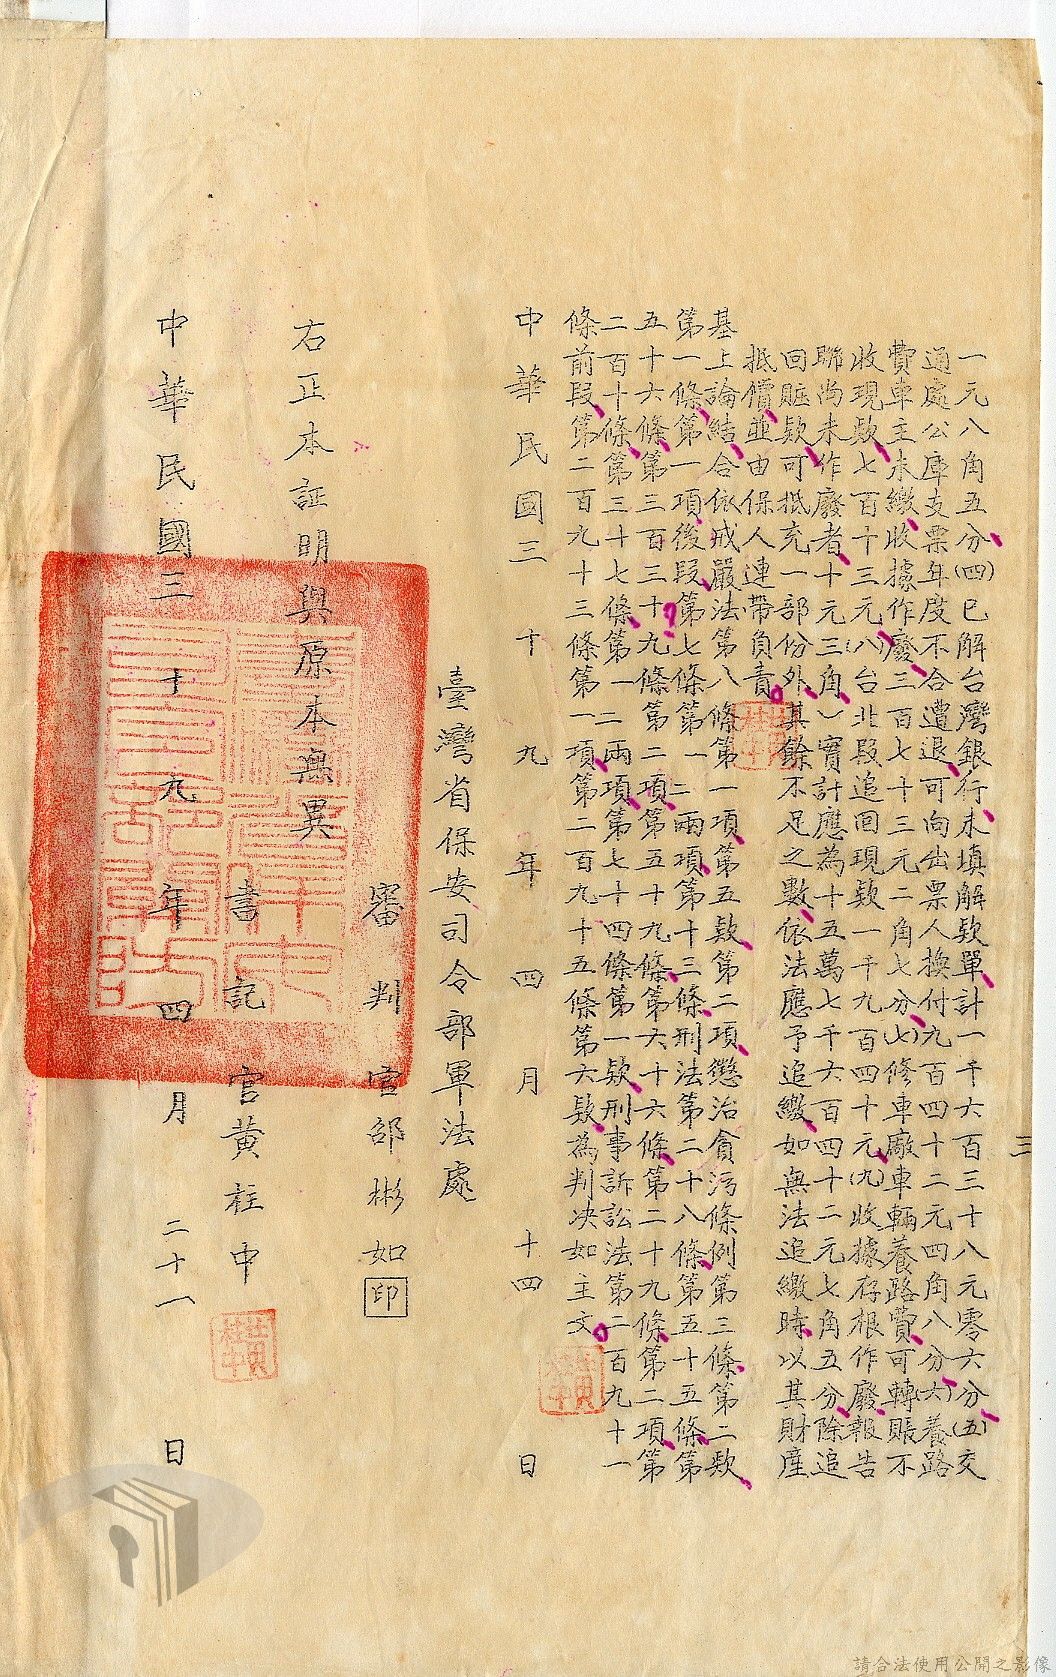 三
一元八角五分(四)已解台灣銀行未填解欵單計一千六百三十八元零六分(五)交
通處公庫支票年度不合遭退可向出票人換付九百四十二元四角八分(六)養路
費車主未繳收據作廢三百七十三元二角七分(七)修車廠車輛養路費可轉賬不
收現欵七百十三元(八)台北段追回現欵一千九百四十元(九)收據存根作廢報告
聯尚未作廢者十元三角)實計應為十五萬七千六百四十二元七角五分除追
回賍欵可抵充一部份外其餘不足之數依法應予追繳如無法追繳時以其財產
抵償並由保人連帶負責
基上論結合依戒嚴法第八條第一項第五欵第二項懲治貪污條例第三條第二欵
第一條第一項後段第七條第一二兩項第十三條刑法第二十八條第五十五條第
五十六條第三百三十九條第二項第五十九條第六十六條第二十九條第二項第
二百十條第三十七條第一二兩項第七十四條第一欵刑事訴訟法第二百九十一
條前段第二百九十三條第一項第二百九十五條第六欵為判决如主文
中華民國三十九年四月十四日
臺灣省保安司令部軍法處
審判官邵彬如印
右正本証明與原本無異
書記官黃柱中
中華民國三十九年四月二十一日
請合法使用公開之影像